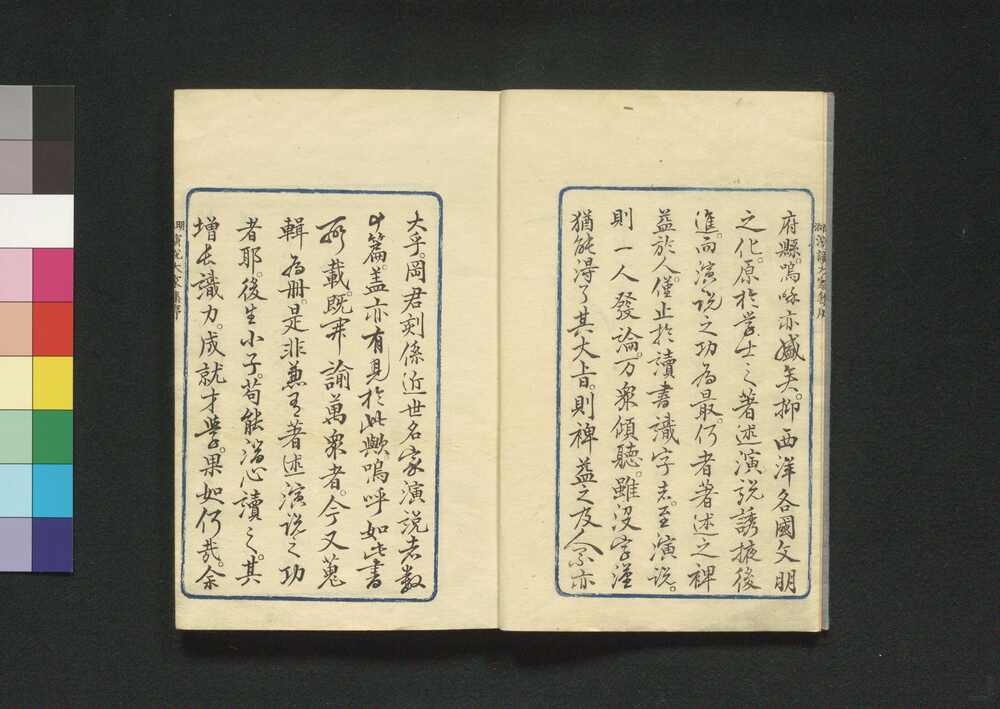 府縣。嗚呼亦盛矣。抑西洋各國文明
之化。原於学士之著述演説誘掖後
進。而演説之功為最。何者著述之裨
益於人。僅止於讀書識字者。至演説。
則一人發論。万衆傾聽。雖没字漢
猶能得了其大旨。則裨益之及人亦
大乎。岡君刻係近世名家演説者数
十篇。盖亦有見於此歟嗚呼如此書
所載。既開諭萬衆者。今又蒐
輯為冊。是非兼有著述演説之功
者耶。後生小子。苟能潜心讀之。其
増長識力。成就才学。果如何哉。余
演説大家集序